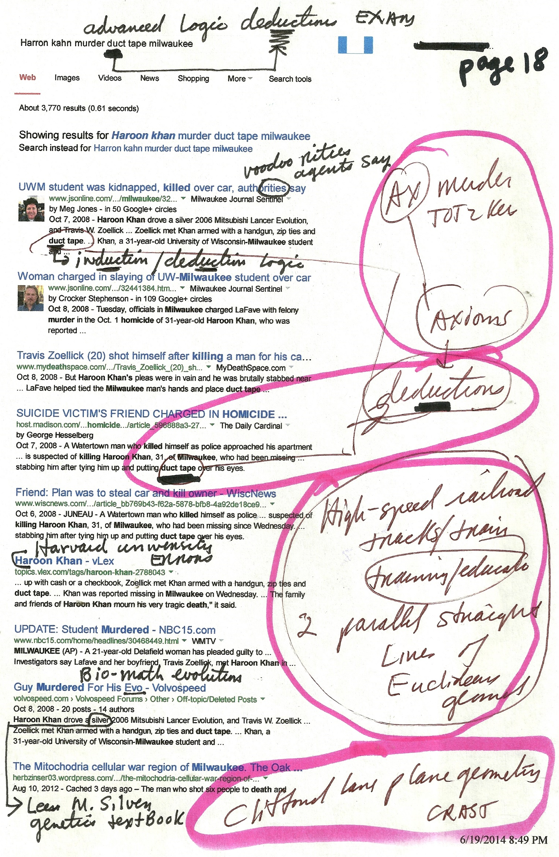 advanced Logic deductions EXAM
Harron kahn murder duct tape milwaukee
page 18
Web Images Videos News Shopping More Search tools
About 3,770 results (0.61 seconds)
Showing results for Haroon khan murder duct tape milwaukee
Search instead for Harron kahn murder duct tape milwaukee
voodoo
agents say
UWM student was kidnapped, killed over car, authorities say
www.jsonline.com/.../milwaukee/32... Milwaukee Journal Sentinel
by Meg Jones - in 50 Google+ circles
Oct 7, 2008 - Haroon Khan drove a silver 2006 Mitsubishi Lancer Evolution,
and Travis W. Zoellick ... Zoellick met Khan armed with a handgun, zip ties and
duct tape. ... Khan, a 31-year-old University of Wisconsin-Milwaukee student
and ...
induction/deduction Logic
Woman charged in slaying of UW-Milwaukee student over car
www.jsonline.com/.../32441384.htm... Milwaukee Journal Sentinel
by Crocker Stephenson - in 109 Google+ circles
Oct 8, 2008 - Tuesday, officials in Milwaukee charged LaFave with felony
murder in the Oct. 1 homicide of 31-year-old Haroon Khan, who was
reported ...
Ax murder
Axioms
Travis Zoellick (20) shot himself after killing a man for his ca...
www.mydeathspace.com/.../Travis_Zoellick_(20)_sh... MyDeathSpace.com
Oct 8, 2008 - But Haroon Khan's pleas were in vain and he was brutally stabbed near
... LaFave helped tied the Milwaukee man's hands and place duct tape ...
deductions
SUICIDE VICTIM'S FRIEND CHARGED IN HOMICIDE ...
host.madison.com/...homicide.../article_896888a3-27... The Daily Cardinal
by George Hesselberg
Oct 7, 2008 - A Watertown man who killed himself as police approached his apartment
... is suspected of killing Haroon Khan, 31, of Milwaukee, who had been missing ...
stabbing him after tying him up and putting duct tape over his eyes.
Friend: Plan was to steal car and kill owner - WiscNews
www.wiscnews.com/.../article_bb769b43-f62a-5878-bfb8-4a92de18ce9...
Oct 6, 2008 - JUNEAU - A Watertown man who killed himself as police ... suspected of
killing Haroon Khan, 31, of Milwaukee, who had been missing since Wednesday. ...
stabbing him after tying him up and putting duct tape over his eyes.
Harvard university
Haroon Khan - vLex
topics.vlex.com/tags/haroon-khan-2788043
... up with cash or a checkbook, Zoellick met Khan armed with a handgun, zip ties and
duct tape. ... Khan was reported missing in Milwaukee on Wednesday. ... The family
and friends of Haroon Khan mourn his very tragic death," it said.
High-speed railroad
tracks/train
training/educate
2 parallel straight
Lines of
Euclidean
UPDATE: Student Murdered - NBC15.com
www.nbc15.com/home/headlines/30468449.html WMTV
MILWAUKEE (AP) - A 21-year-old Delafield woman has pleaded guilty to ...
Investigators say Lafave and her boyfriend, Travis Zoellick, met Haroon Khan in ...
Bio-math evolution
Guy Murdered For His Evo - Volvospeed
volvospeed.com › Volvospeed Forums › Other › Off-topic/Deleted Posts
Oct 8, 2008 - 20 posts - 14 authors
Haroon Khan drove a silver 2006 Mitsubishi Lancer Evolution, and Travis W. Zoellick ...
Zoellick met Khan armed with a handgun, zip ties and duct tape. ... Khan, a
31-year-old University of Wisconsin-Milwaukee student and ...
The Mitochodria cellular war region of Milwaukee. The Oak ...
herbzinser03.wordpress.com/.../the-mitochodria-cellular-war-region-of-...
Aug 10, 2012 - Cached 3 days ago – The man who shot six people to death and
Lee M. Silver
genetics textBook
Clifford lane plane geometry
6/19/2014 8:49 PM